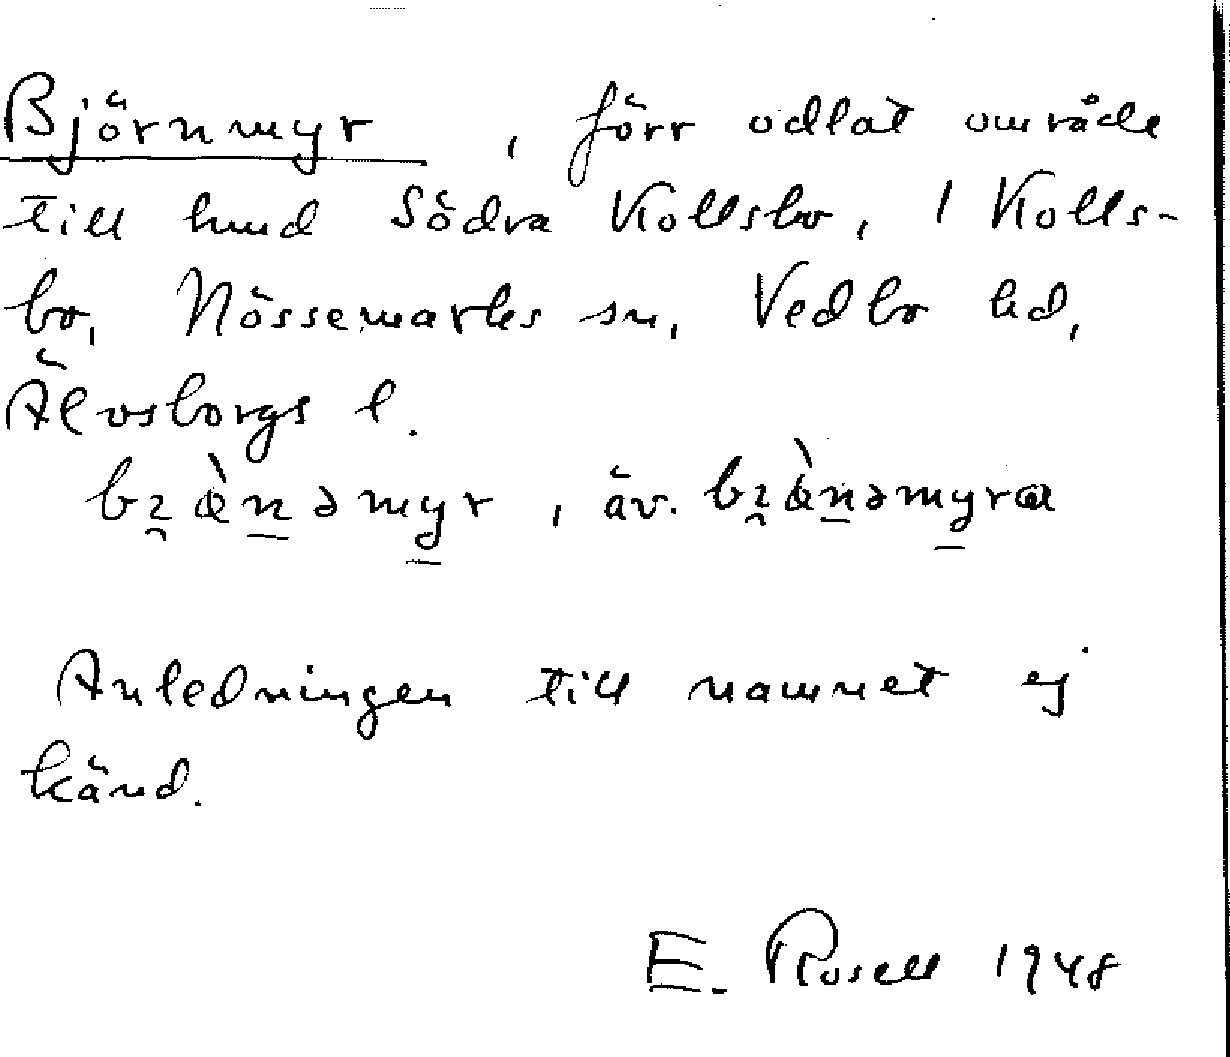 Björnmyr, förr odlat område
till hmd Södra Kollsbo, 1 Kolls-
bo, Nössemarks sn, Vedbo hd,
Älvsborgs l.
bʐæ̀nəmyr, äv. bʐæ̀nəmyra
Anledningen till namnet ej
känd.
E. Rosell 1948